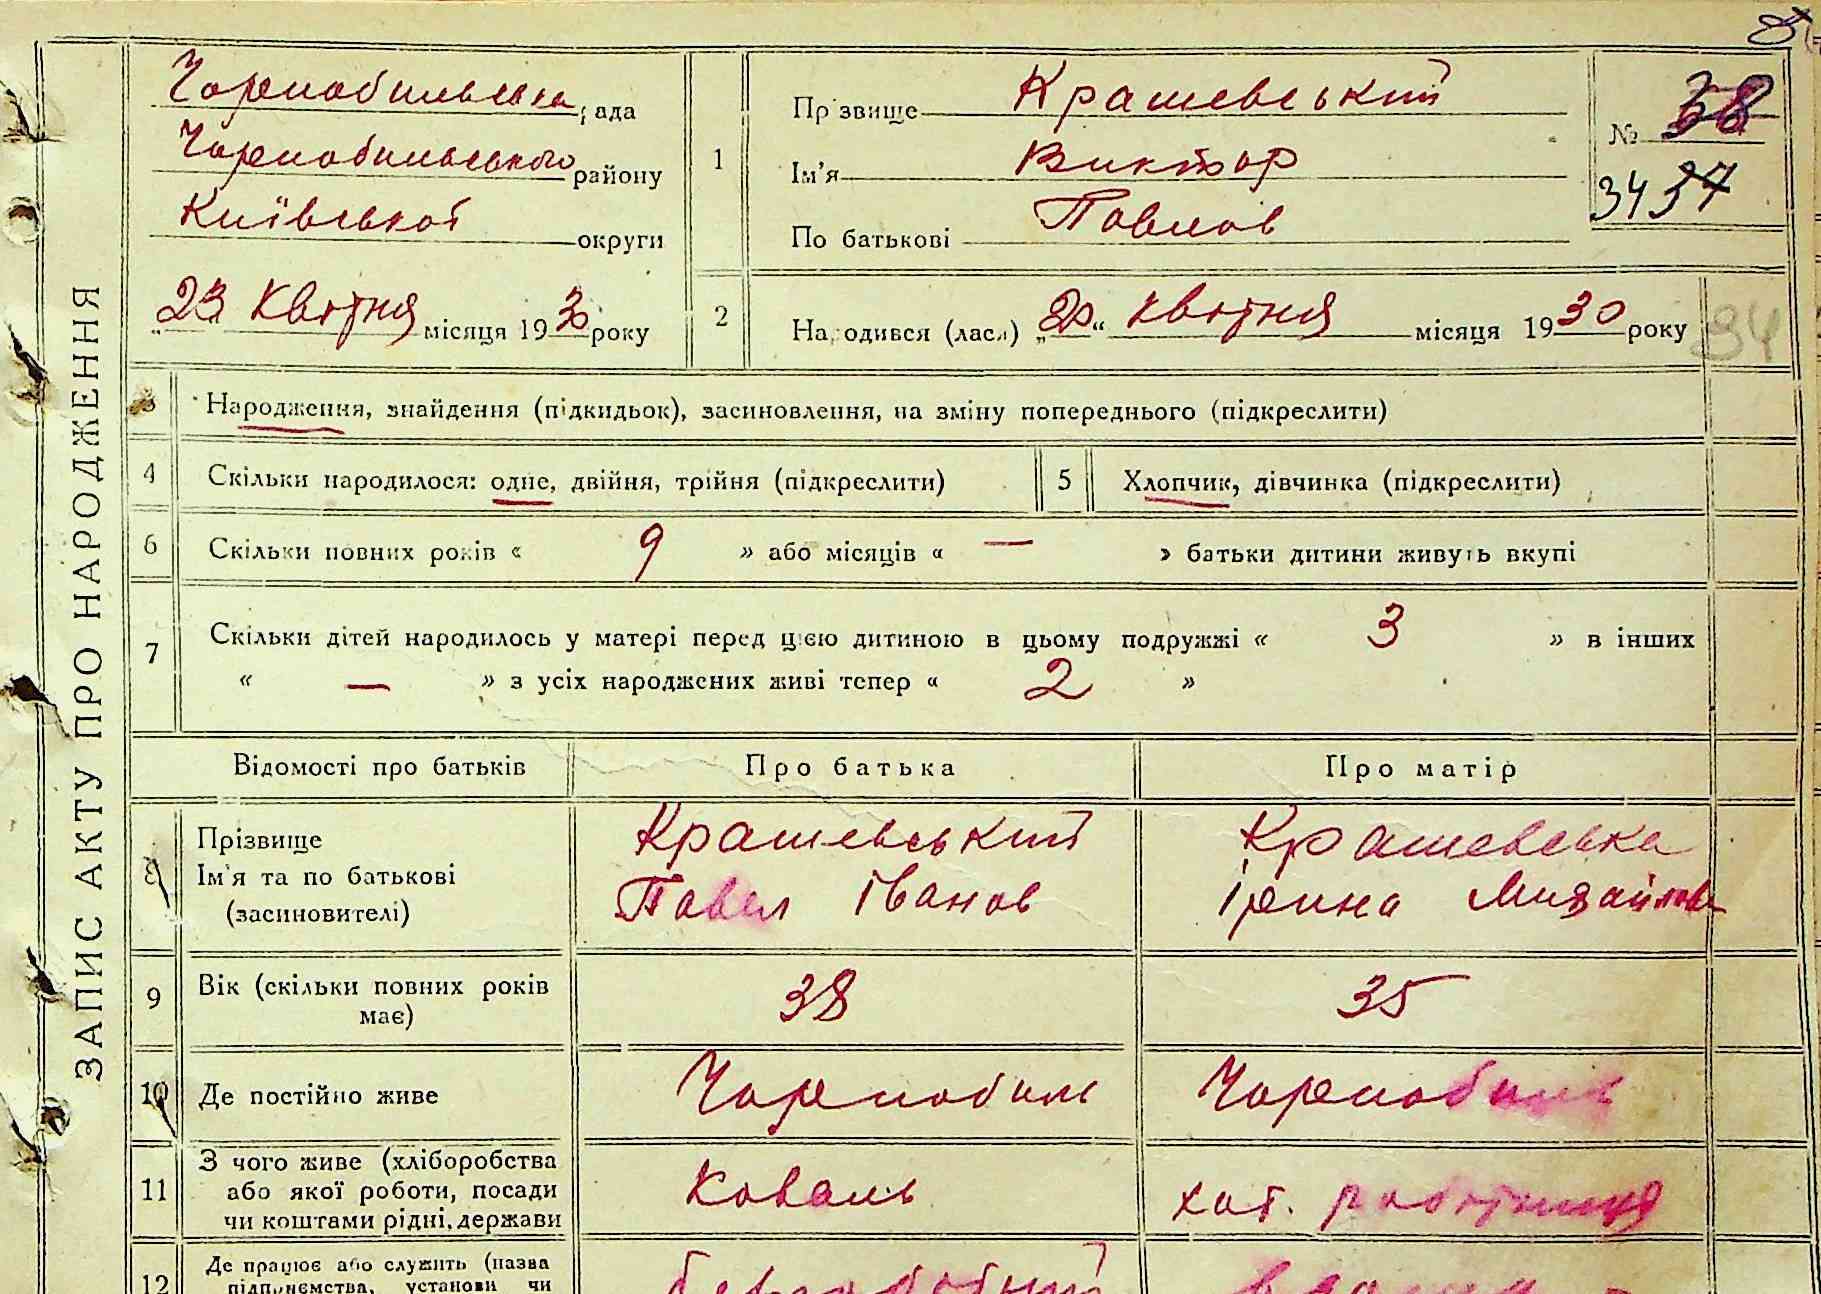 ЗАПИС АКТУ ПРО НАРОДЖЕННЯ
Чорнобильська рада
Чорнобильського району
Київської округи
„23 квітня місяця 1930 року
1
Прізвище Крашевський
Ім'я Виктор
По батькові Павлов
№ 38
34 37
2
Народився (лась) „20“ квітня місяця 1930 року
34
3 Народження, знайдення (підкидьок), засиновлення, на зміну попереднього (підкреслити)
4 Скільки народилося: одне, двійня, трійня (підкреслити)
5 Хлопчик, дівчинка (підкреслити)
6 Скільки повних років « 9 » або місяців « — » батьки дитини живуть вкупі
7 Скільки дітей народилось у матері перед цією дитиною в цьому подружжі « 3 » в інших
« — » з усіх народжених живі тепер « 2 »
Відомості про батьків Про батька Про матір
8 Прізвище
Ім'я та по батькові
(засиновителі)
Крашевський
Павел Іванов
Крашевська
Ірина Михайлов
9 Вік (скільки повних років
має)
38 35
10 Де постійно живе Чорнобиль Чорнобиль
11 З чого живе (хліборобства
або якої роботи, посади
чи коштами рідні, держави
Коваль хат. робітниця
12 Де працює або служить (назва
підприємства, установи чи